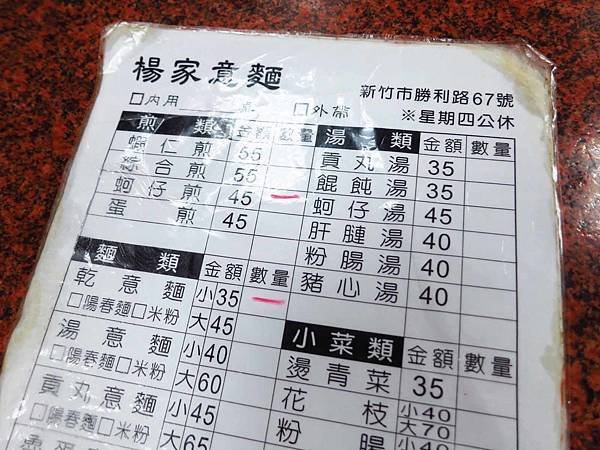 楊家意麵
新竹市勝利路67號
□內用 桌 □外帶
※星期四公休
煎類 金額 數量
蝦仁煎 55
綜合煎 55
蚵仔煎 45
蛋煎 45
湯類 金額 數量
貢丸湯 35
餛飩湯 35
蚵仔湯 45
肝腱湯 40
粉腸湯 40
豬心湯 40
麵類 金額 數量
乾意麵 小35
□陽春麵□米粉 大45
湯意麵 小40
□陽春麵□米粉 大60
貢丸意麵 小45
□陽春麵□米粉 大65
小菜類 金額 數量
燙青菜 35
花枝 小40
大70
粉腸 小40